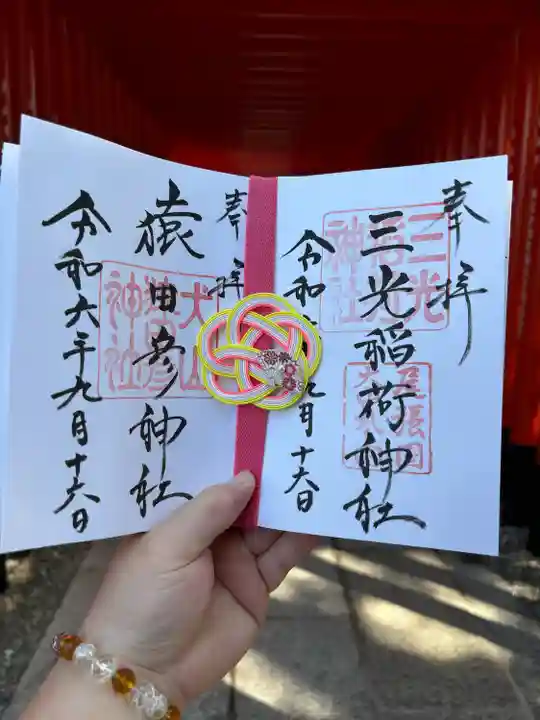 奉拝
三光稲荷神社
三光稲荷神社
尾張国犬山
令和六年九月十六日
奉拝
猿田彦神社
犬山猿田彦神社
令和六年九月十六日